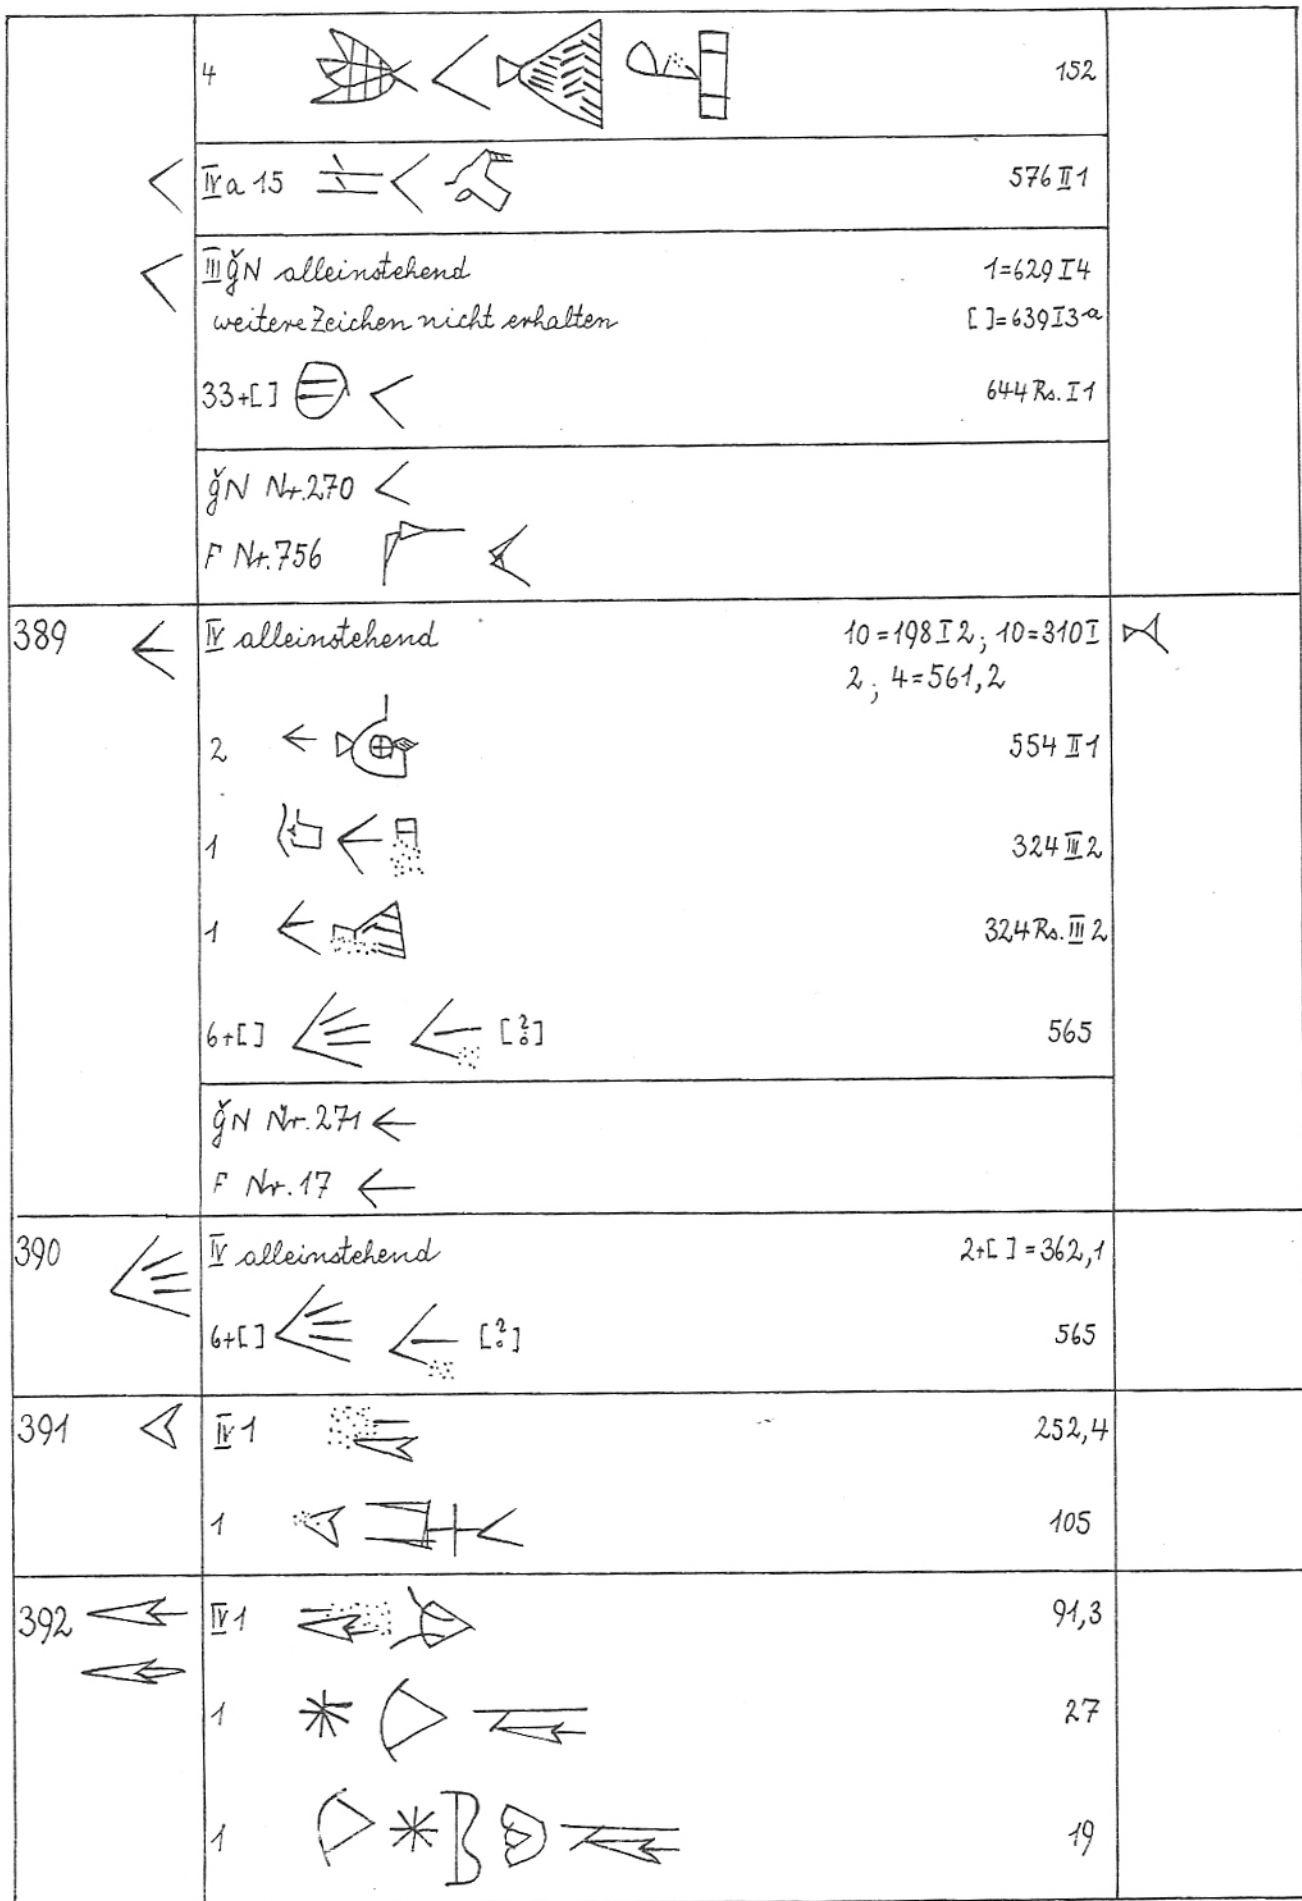 4 152
IV a 15 576 II 1
III ǧN alleinstehend 1=629 I 4
weitere Zeichen nicht erhalten [ ]=639 I 3-a
33+[ ] 644 Rs. I 1
ǧN Nr. 270
F Nr. 756
389 IV alleinstehend 10=198 I 2; 10=310 I
2; 4=561,2
2 554 II 1
1 324 III 2
1 324 Rs. III 2
6+[ ] [?] 565
ǧN Nr. 271
F Nr. 17
390 IV alleinstehend 2+[ ]=362,1
6+[ ] [?] 565
391 IV 1 252,4
1 105
392 IV 1 91,3
1 27
1 19